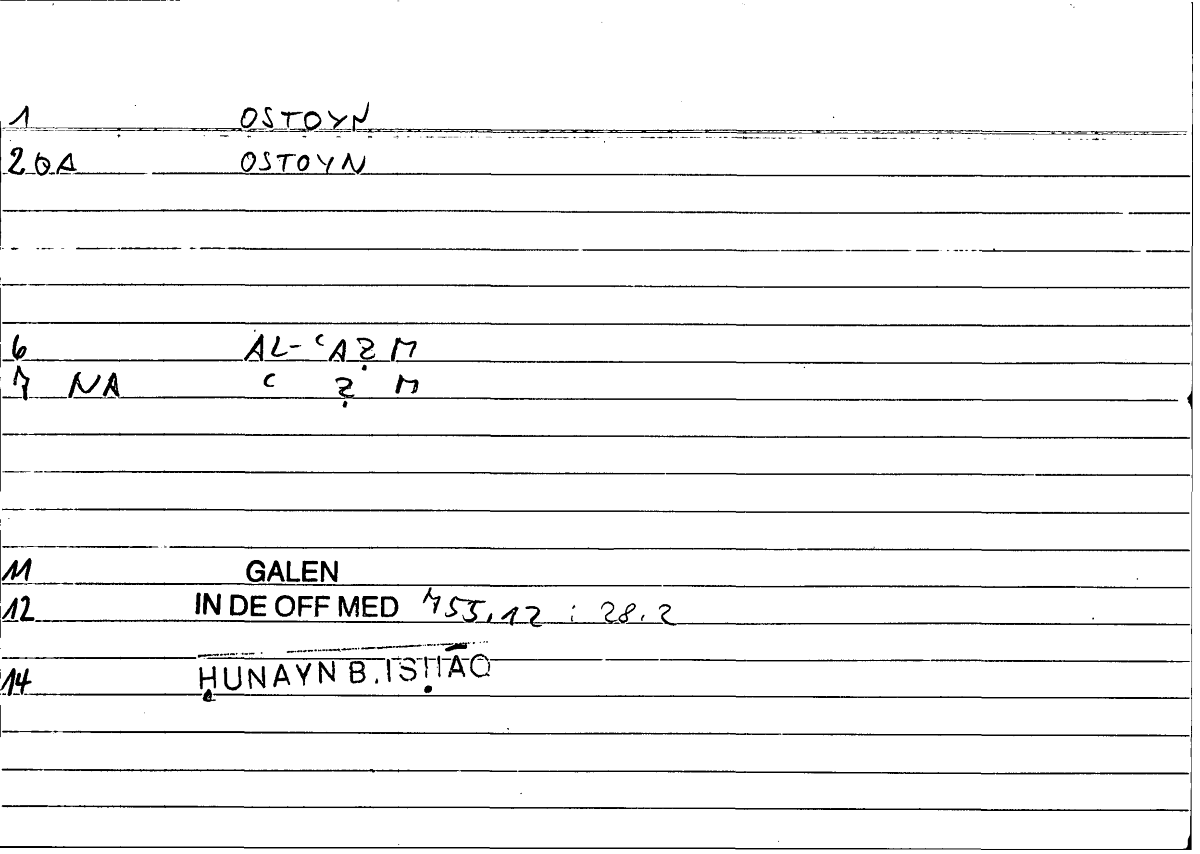 1 OSTOYN
2 QA OSTOYN
6 AL-ʿAẒM
7 NA ʿ Ẓ M
11 GALEN
12 IN DE OFF MED 755,12 : 28.2
14 ḤUNAYN B. ISḤĀQ